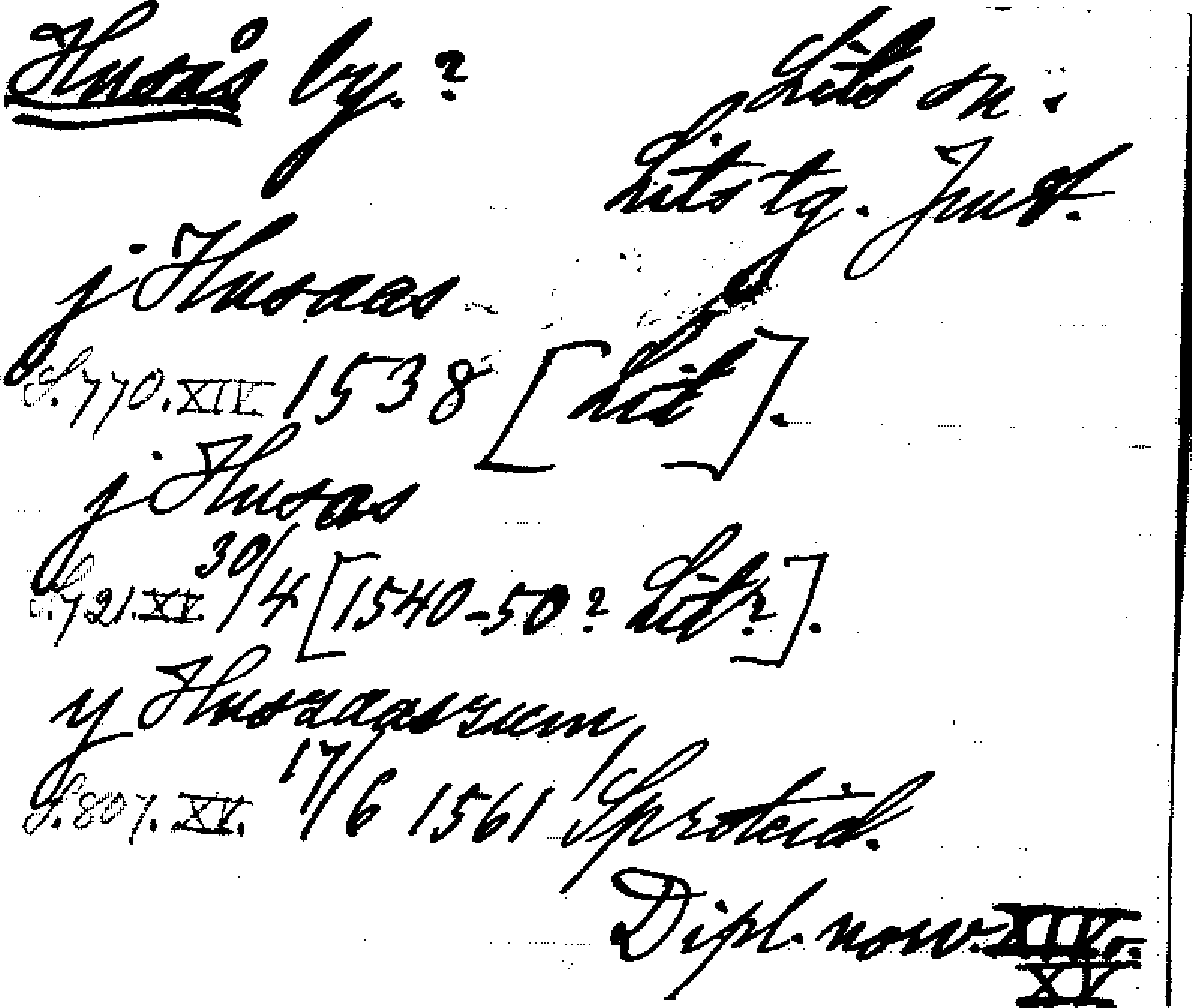 Husås by.? Lits sn.
Lits tg. Jmtl.
j Husaas
S. 770. XIV 1538 [Lit].
j Husas
S. 721. XV. 30/4 [1540-50? Lit?].
y Huszaaszum
S. 807. XV. 17/6 1561 Sproteid.
Dipl. norv. XIV o.
XV